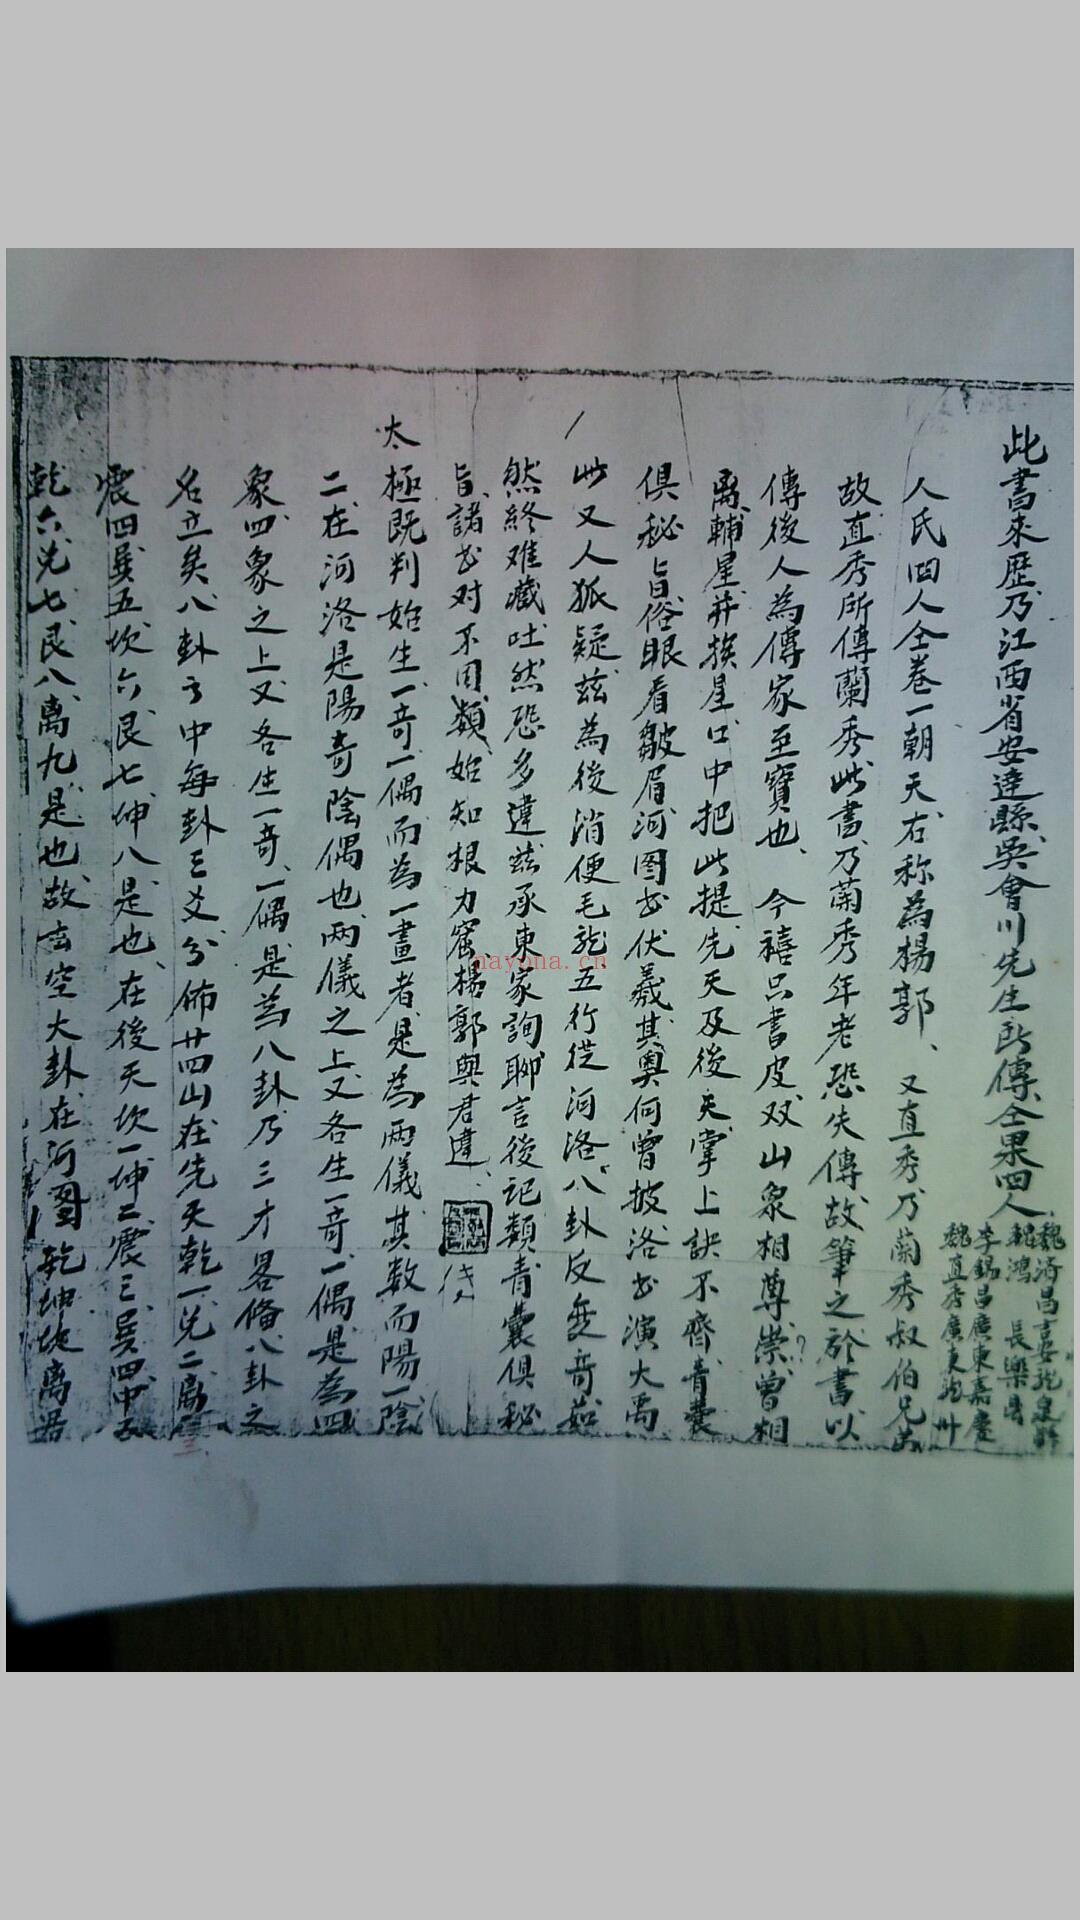 此書來歷乃江西省安達縣吳會川先生所傳仝果四人
魏濟昌
魏鴻 長樂
李錫昌廣東嘉慶
魏直秀廣東龙川
人氏四人仝卷一朝天右称為楊郭、又直秀乃蘭秀叔伯兄弟
故直秀所傳蘭秀此書乃蘭秀年老恐失傳故筆之於書以
傳後人為傳家至寶也、今禧只書皮双山众相尊崇曾相
離輔星并挨星口中把此提先天及後天掌上訣不齊青囊
俱秘旨俗眼看皺眉河图书伏羲其奧何曾披洛书演大禹
此又人狐疑茲為後消便毛龙五行從河洛八卦反变奇茹
然終难藏吐然恐多違茲承東家詢聊言後記類青囊俱秘
旨諸书对不同類始知根力窩楊郭與君違、
太極既判始生一奇一偶而為一畫者是為两儀其数而陽一陰
二在河洛是陽奇陰偶也两儀之上又各生一奇一偶是為四
象四象之上又各生一奇一偶是為八卦乃三才畧俻八卦之
名立矣八卦之中每卦三爻分佈廿四山在先天乾一兑二离三
震四巽五坎六艮七坤八是也在後天坎一坤二震三巽四中五
乾六兑七艮八离九是也故玄空大卦在河圖乾坤坎离居
nayona.cn